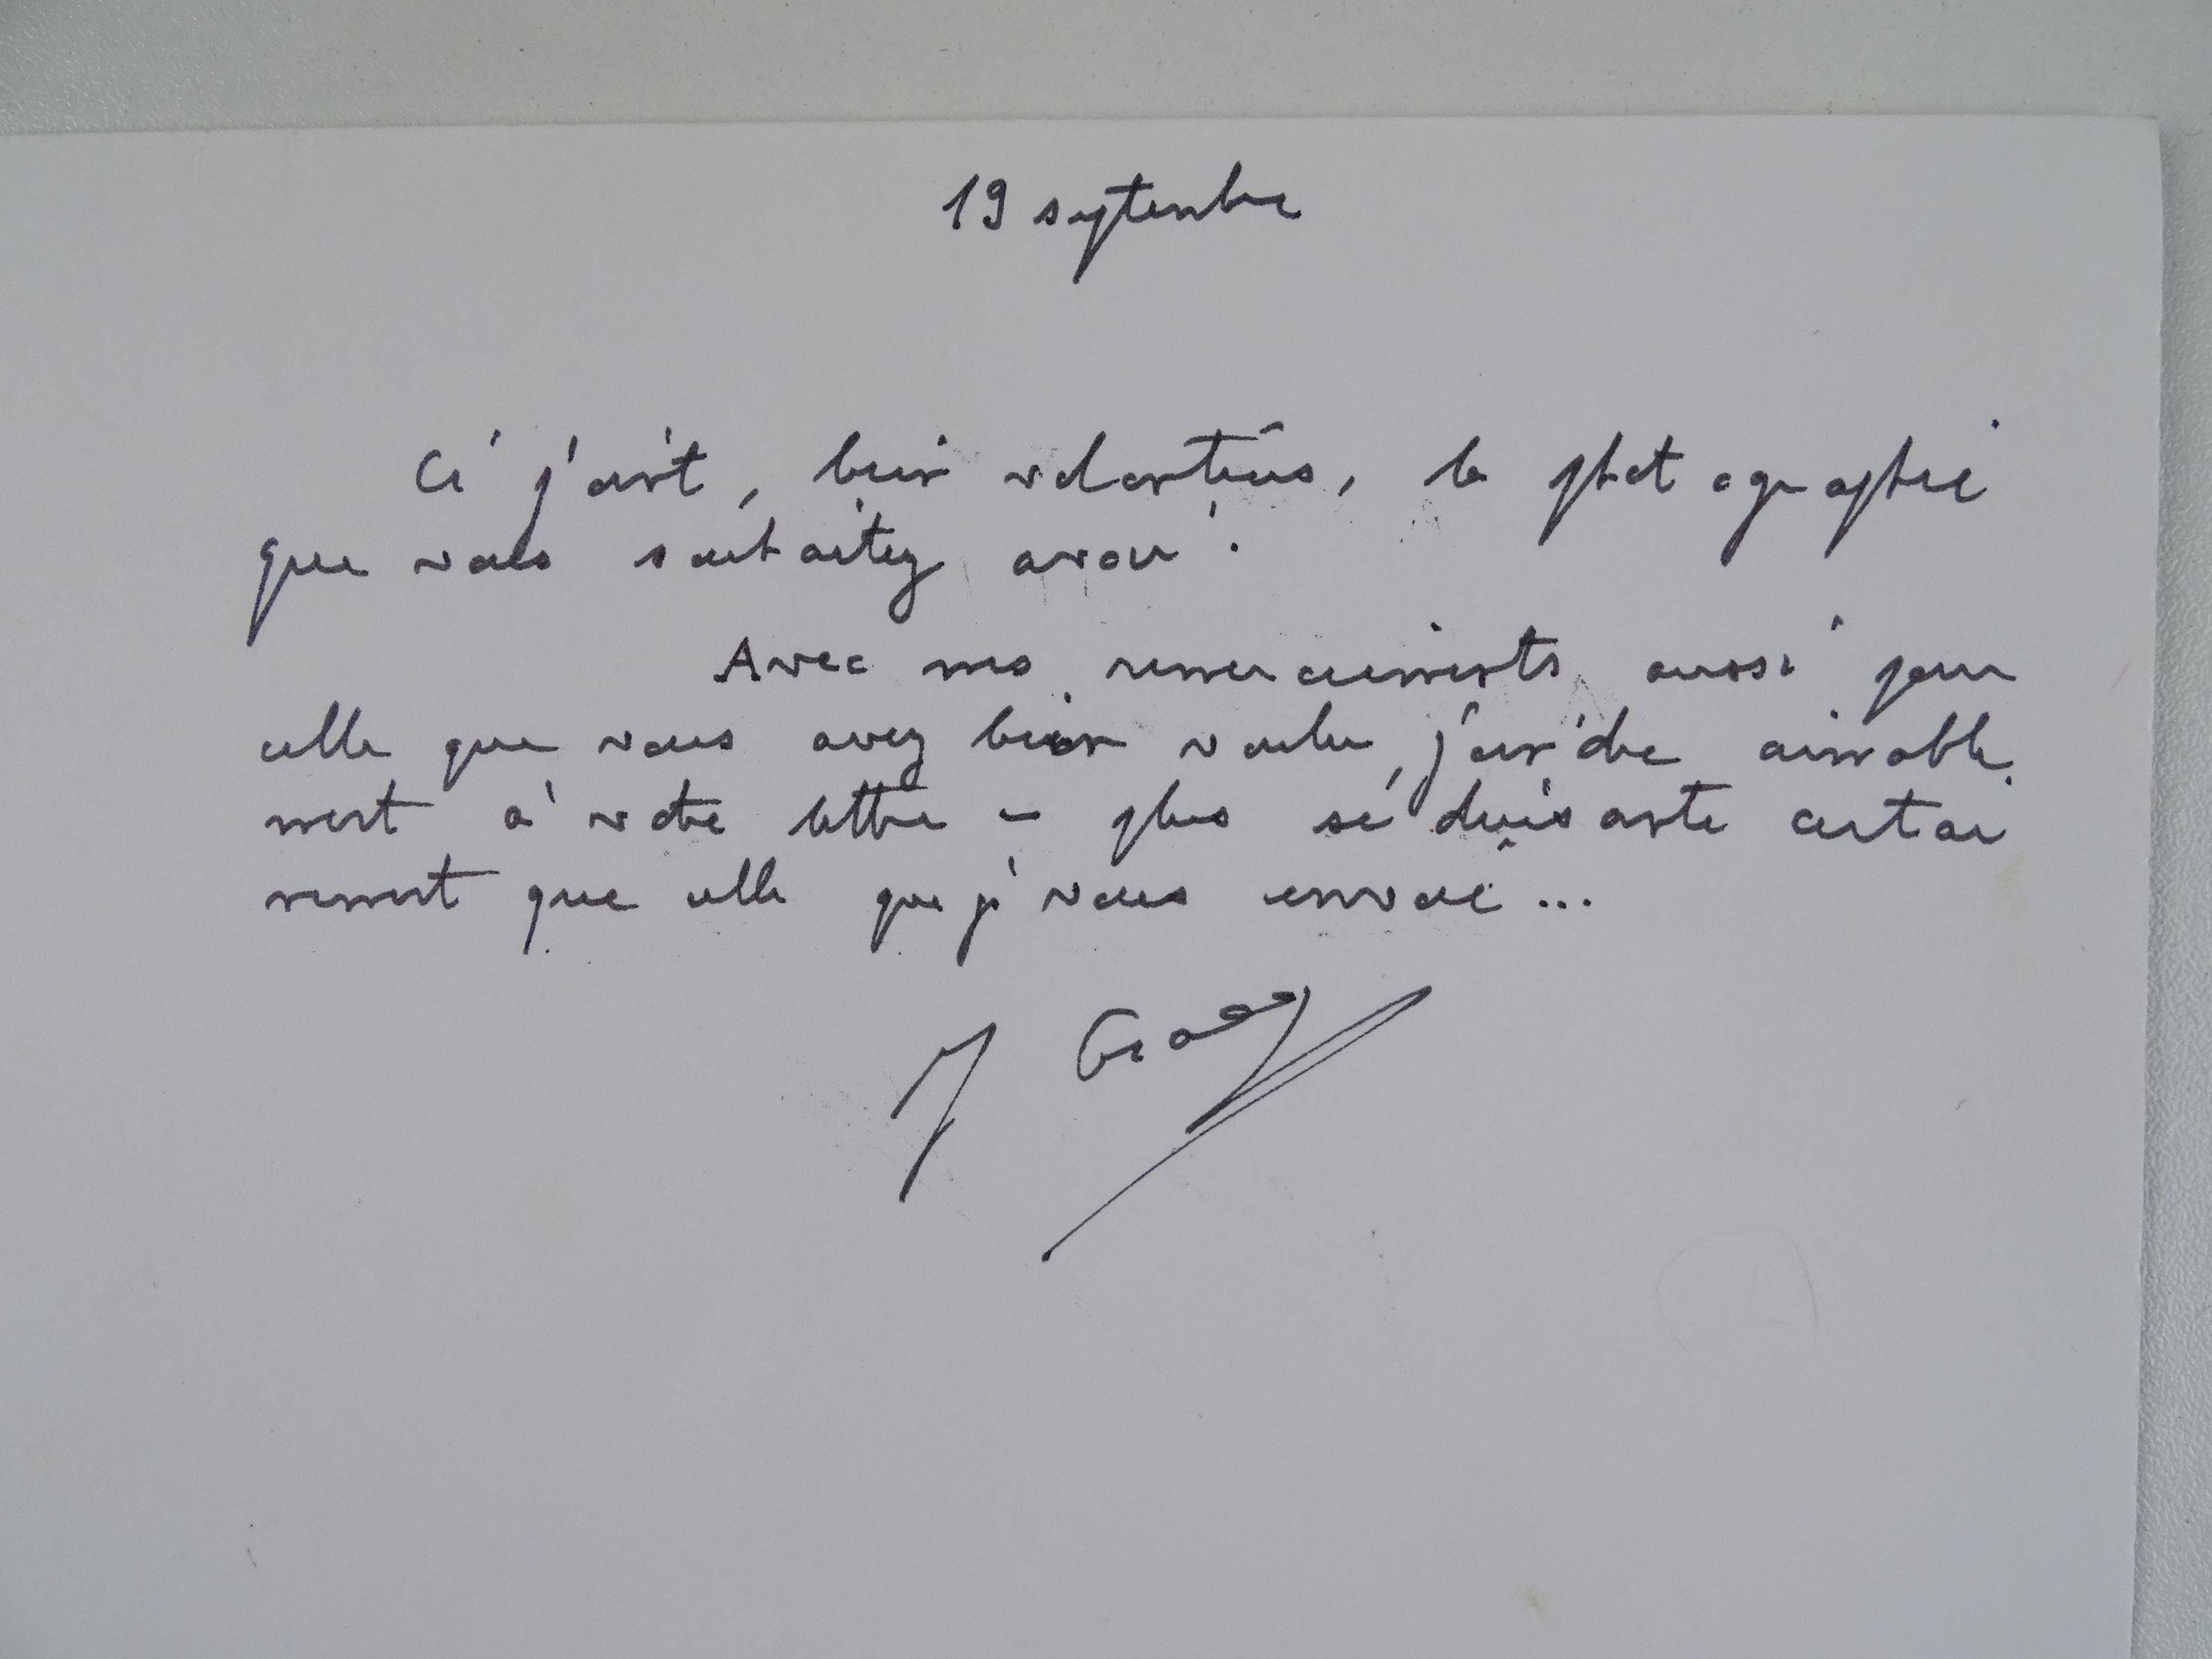 19 septembre
Ci joint, bien volontiers, la photographie
que vous souhaitez avoir.
Avec mes remerciements aussi pour
celle que vous avez bien voulu joindre aimable
ment à votre lettre - plus séduisante certai
nement que celle que je vous envoie...
J Gracq